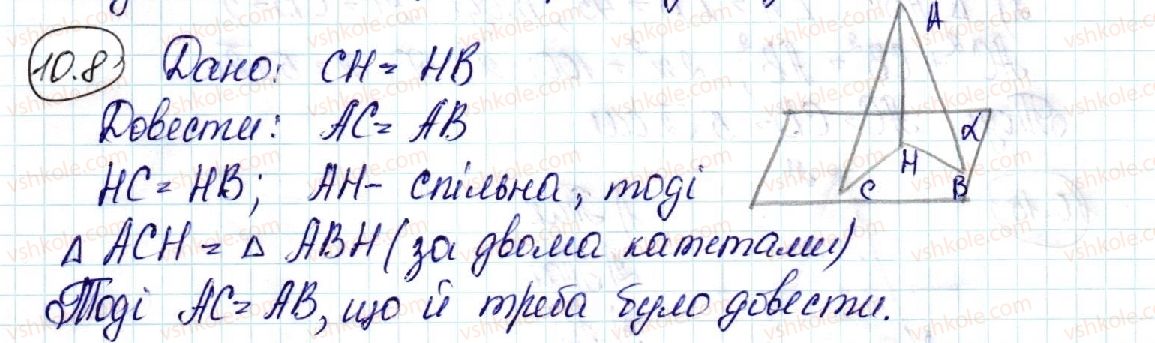 10.8 Дано: CH = HB
Довести: AC = AB
HC = HB; AH - спільна, тоді
Δ ACH = Δ ABH (за двома катетами)
Тоді AC = AB, що й треба було довести.
A
α
H
C
B
vshkole.com